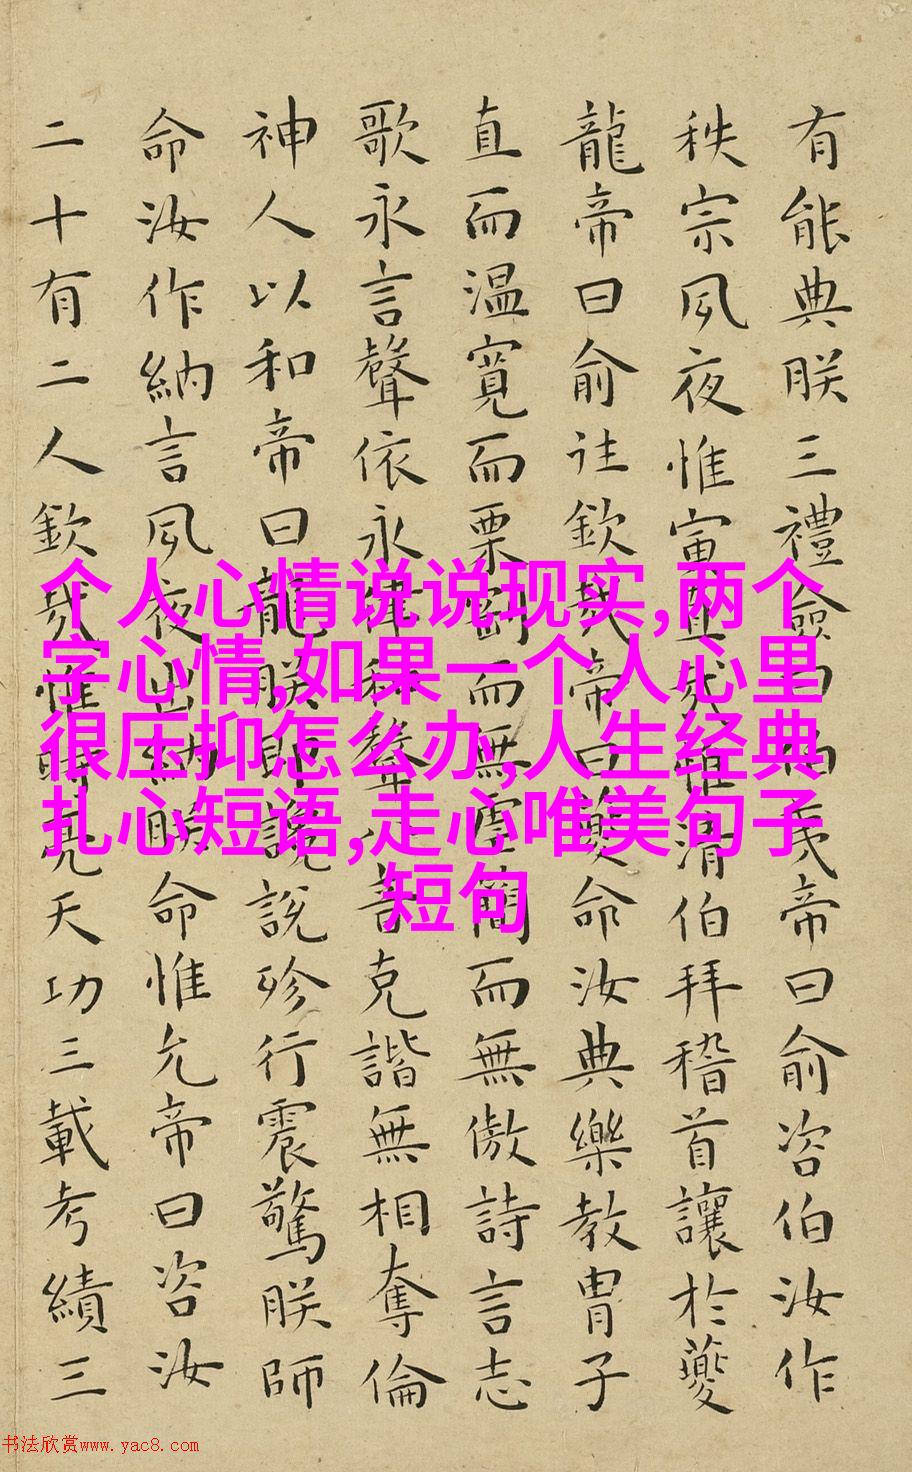 有能典朕三禮僉曰伯夷帝曰俞咨伯汝作
秩宗夙夜惟寅直哉惟清伯拜稽首讓於夔
龍帝曰俞往欽哉帝曰夔命汝典樂教胄子
直而温寬而栗剛而無虐簡而無傲詩言志
歌永言聲依永律和聲八音克諧無相奪倫
神人以和帝曰龍朕堲讒說殄行震驚朕師
命汝作納言夙夜出納朕命惟允帝曰咨汝
二十有二人欽哉惟時亮天功三載考績三
个人心情说说现实,两个
字心情,如果一个人心里
很压抑怎么办,人生经典
扎心短语,走心唯美句子
短句
书法欣赏www.yac8.com